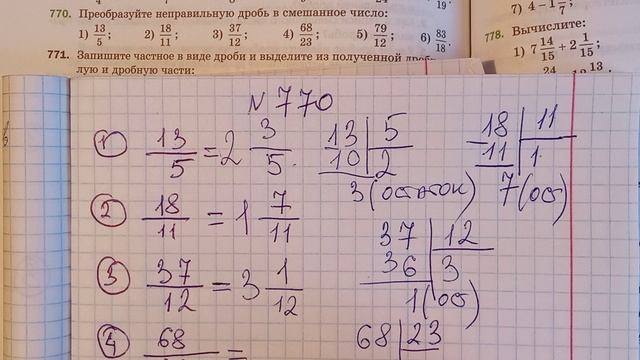 19.
770. Преобразуйте неправильную дробь в смешанное число:
1) 13/5; 2) 18/11; 3) 37/12; 4) 68/23; 5) 79/12; 6) 83/18.
771. Запишите частное в виде дроби и выделите из полученной дробь
лую и дробную части:
7) 4 − 1 1/7;
778. Вычислите:
1) 7 14/15 + 2 1/15;
24 13
N 770
① 13/5 = 2 3/5.
13 | 5
10 | 2
3 (остаток)
18 | 11
11 | 1
7 (ост)
② 18/11 = 1 7/11
③ 37/12 = 3 1/12
37 | 12
36 | 3
1 (ост)
④ 68 =
68 | 23